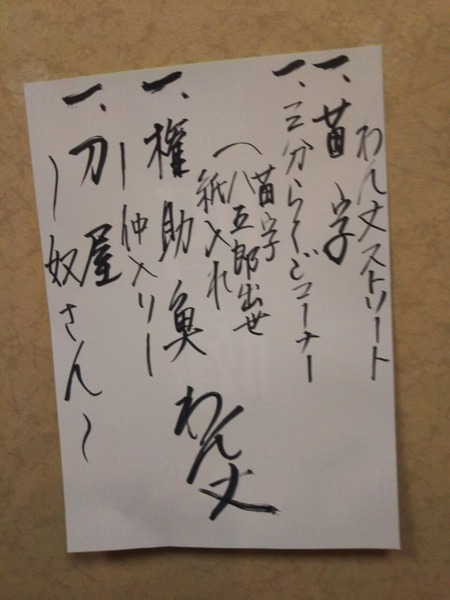 わん丈ストリート
一、苗字
一、三分らくごコーナー
(苗字
八五郎出世
紙入れ
一、権助魚
ー仲入りー
一、刀屋
〜奴さん〜
わん丈